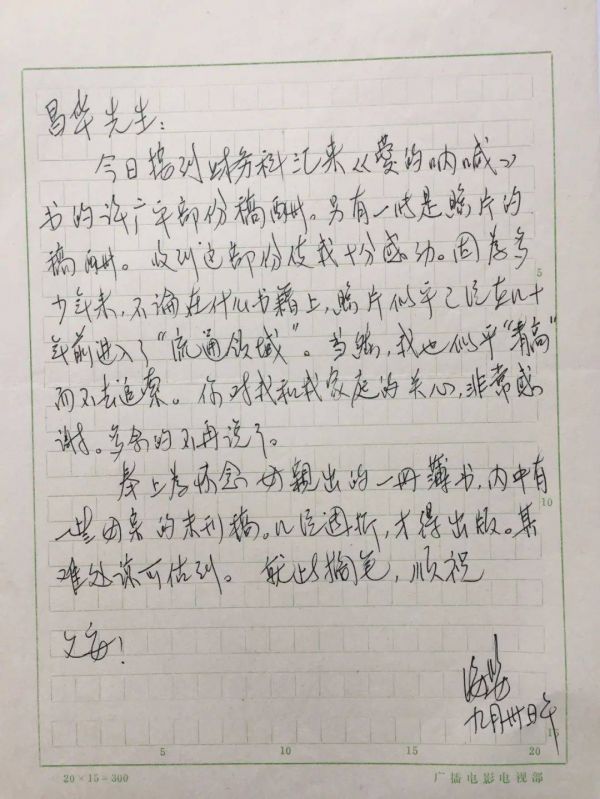 昌华先生：
今日接到财务科汇来《爱的呐喊》
书的许广平部份稿酬。另有一些是照片的
稿酬。收到这部份使我十分感动。因为多
少年来，不论在什么书籍上，照片似乎已经在几十
年前进入了“流通领域”。当然，我也似乎“清高”
而不去追索。你对我和我家庭的关心，非常感
谢。多余的不再说了。
奉上为怀念母亲出的一册薄书，内中有
一些母亲的未刊稿。几经周折，才得出版。其
难处谅可估到。就此搁笔，顺祝
文安！
海婴
九月卅日午
5
10
15
5
10
15
20
20×15=300
广播电影电视部